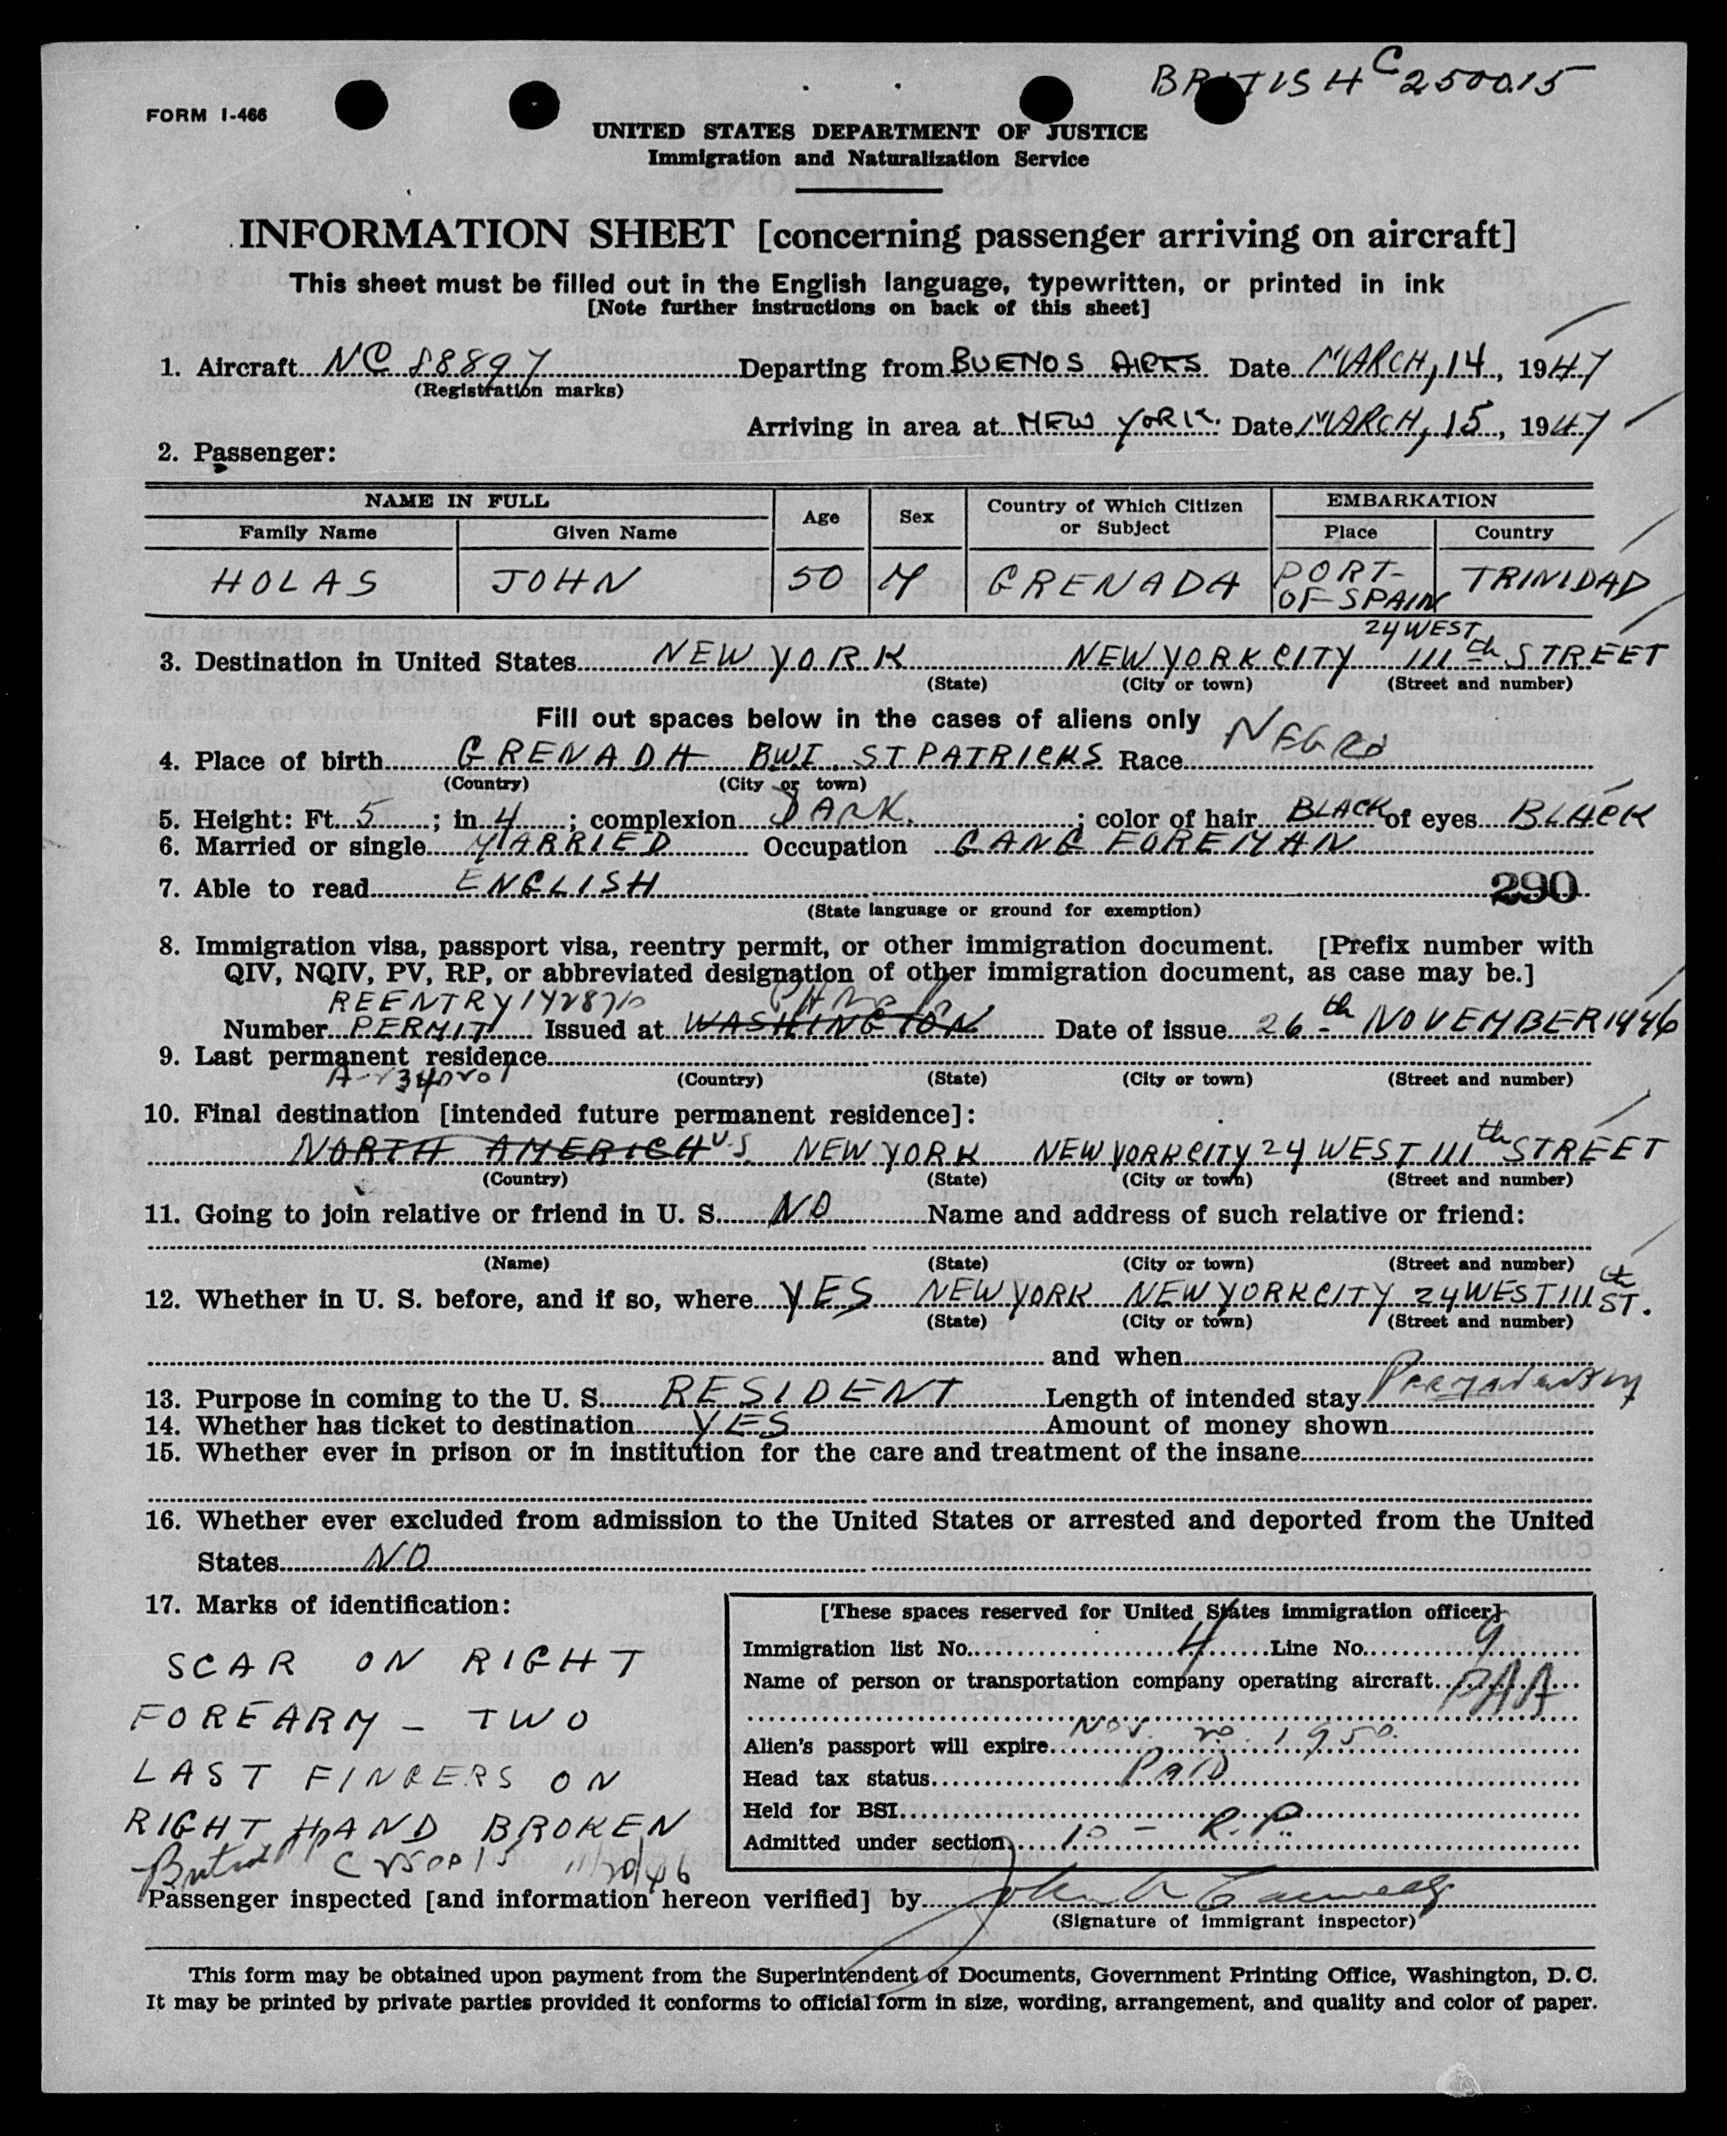 BRITISH C250015
FORM I-466
UNITED STATES DEPARTMENT OF JUSTICE
Immigration and Naturalization Service
INFORMATION SHEET [concerning passenger arriving on aircraft]
This sheet must be filled out in the English language, typewritten, or printed in ink
[Note further instructions on back of this sheet]
1. Aircraft NC 88897 Departing from BUENOS AIRES Date MARCH, 14, 1947
(Registration marks)
Arriving in area at NEW YORK. Date MARCH, 15, 1947
2. Passenger:
NAME IN FULL Age Sex Country of Which Citizen or Subject EMBARKATION
Family Name Given Name Place Country
HOLAS JOHN 50 M GRENADA PORT-OF-SPAIN TRINIDAD
24 WEST
3. Destination in United States NEW YORK NEW YORK CITY 111th STREET
(State) (City or town) (Street and number)
Fill out spaces below in the cases of aliens only
4. Place of birth GRENADA B.W.I. ST PATRICKS Race NEGRO
(Country) (City or town)
5. Height: Ft. 5; in. 4; complexion DARK.; color of hair BLACK of eyes BLACK
6. Married or single MARRIED Occupation GANG FOREMAN
7. Able to read ENGLISH 290
(State language or ground for exemption)
8. Immigration visa, passport visa, reentry permit, or other immigration document. [Prefix number with
QIV, NQIV, PV, RP, or abbreviated designation of other immigration document, as case may be.]
REENTRY
Number PERMIT Issued at WASHINGTON Date of issue 26th NOVEMBER 1946
9. Last permanent residence
(Country) (State) (City or town) (Street and number)
10. Final destination [intended future permanent residence]:
NORTH AMERICA U.S. NEW YORK NEW YORK CITY 24 WEST 111th STREET
(Country) (State) (City or town) (Street and number)
11. Going to join relative or friend in U. S. NO Name and address of such relative or friend:
(Name) (State) (City or town) (Street and number)
12. Whether in U. S. before, and if so, where YES NEW YORK NEW YORK CITY 24 WEST 111th ST.
(State) (City or town) (Street and number)
and when
13. Purpose in coming to the U. S. RESIDENT Length of intended stay Permanently
14. Whether has ticket to destination YES Amount of money shown
15. Whether ever in prison or in institution for the care and treatment of the insane
16. Whether ever excluded from admission to the United States or arrested and deported from the United
States NO
17. Marks of identification:
SCAR ON RIGHT
FOREARM - TWO
LAST FINGERS ON
RIGHT HAND BROKEN
British PP C 250015 11/20/46
[These spaces reserved for United States immigration officer]
Immigration list No. 4 Line No. 9
Name of person or transportation company operating aircraft PAA
Alien's passport will expire Nov. 20. 1950.
Head tax status Paid
Held for BSI
Admitted under section 10 - R.P.
Passenger inspected [and information hereon verified] by
(Signature of immigrant inspector)
This form may be obtained upon payment from the Superintendent of Documents, Government Printing Office, Washington, D. C.
It may be printed by private parties provided it conforms to official form in size, wording, arrangement, and quality and color of paper.